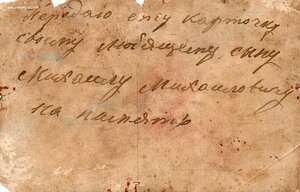 передаю ету карточку
своему любящему сыну
Михаилу Михайловичу
на память